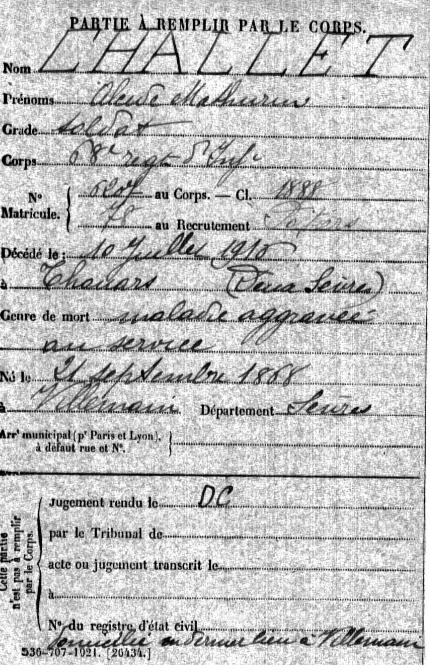 PARTIE À REMPLIR PAR LE CORPS.
Nom CHALLET
Prénoms Mathurin
Grade soldat
Corps régt d'Infie
No au Corps. — Cl. 1888
Matricule. 78 au Recrutement
Décédé le : 10 Juillet 1915
à Thouars (Deux Sèvres)
Genre de mort maladie aggravée
au service
Né le 21 septembre 1868
à Villemain Département Sèvres
Arrt municipal (pr Paris et Lyon),
à défaut rue et No.
Cette partie
n'est pas à remplir
par le Corps.
Jugement rendu le DC
par le Tribunal de
acte ou jugement transcrit le
à
No du registre d'état civil
domicilié en dernier lieu à Villemain
536-707-1921. [26434.]